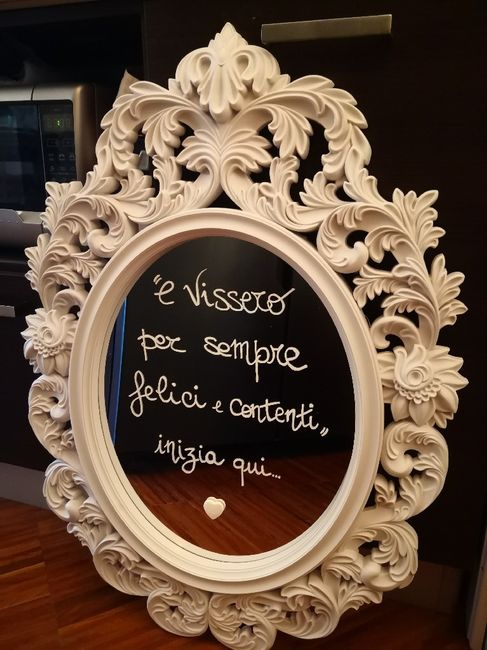 "e vissero
per sempre
felici e contenti"
inizia qui...